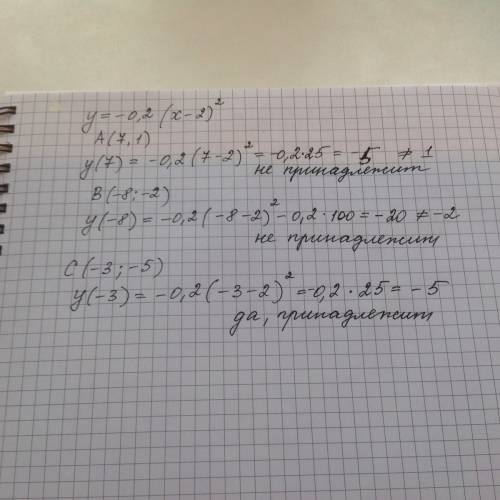 y = -0,2 (x-2)²
A(7,1)
y(7) = -0,2(7-2)² = -0,2·25 = -5 ≠ 1
не принадлежит
B(-8;-2)
y(-8) = -0,2(-8-2)² -0,2·100 = -20 ≠ -2
не принадлежит
C(-3;-5)
y(-3) = -0,2(-3-2)² = -0,2·25 = -5
да, принадлежит